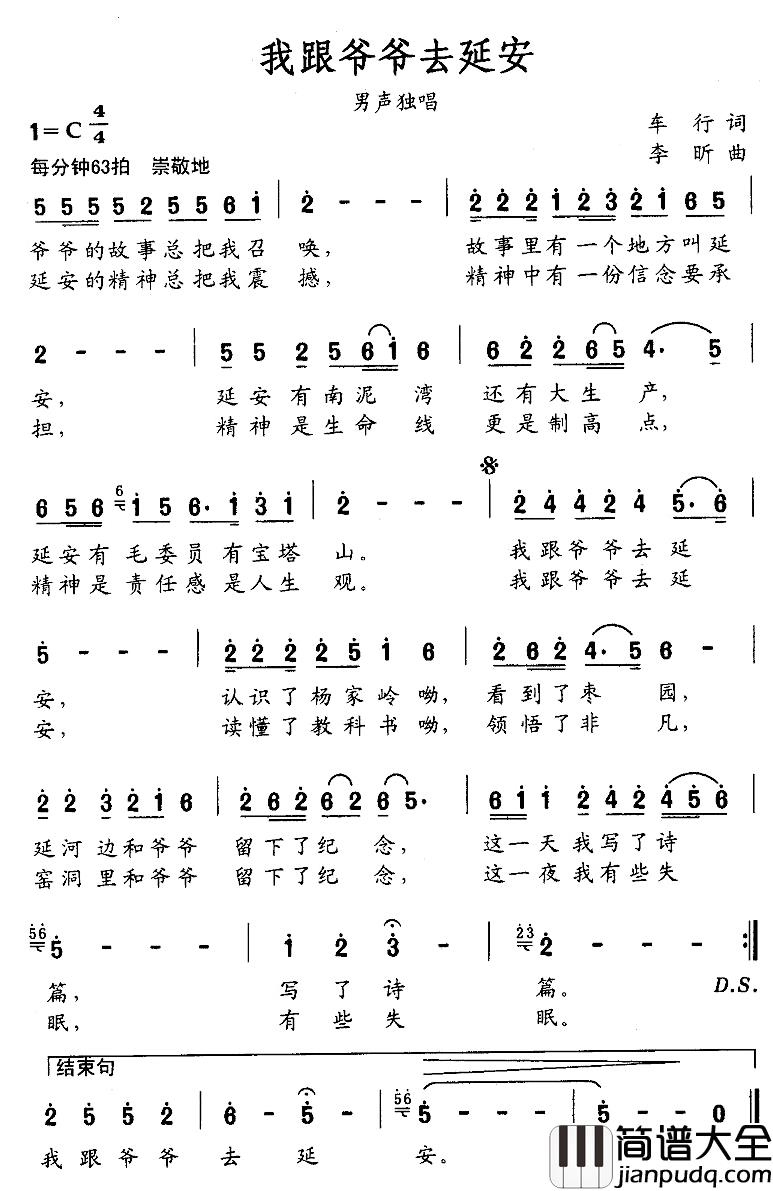 我跟爷爷去延安
男声独唱
1=C 4/4
车行词
李昕曲
每分钟63拍 崇敬地
5 5 5 5 2 5 5 6 1 | 2 - - - | 2 2 2 1 2 3 2 1 6 5 |
爷爷的故事总把我召 唤, 故事里有一个地方叫延
延安的精神总把我震 撼, 精神中有一份信念要承
2 - - - | 5 5 2 5 6 1 6 | 6 2 2 6 5 4· 5 |
安, 延安有南泥湾 还有大生产,
担, 精神是生命线 更是制高点,
6 5 6 6 1 5 6· 1 3 1 | 2 - - - | 2 4 4 2 4 5· 6 |
延安有毛委员有宝塔 山。 我跟爷爷去延
精神是责任感是人生 观。 我跟爷爷去延
5 - - - | 2 2 2 2 5 1 6 | 2 6 2 4· 5 6 - |
安, 认识了杨家岭呦, 看到了枣园,
安, 读懂了教科书呦, 领悟了非凡,
2 2 3 2 1 6 | 2 6 2 6 2 6 5· | 6 1 1 2 4 2 4 5 6 |
延河边和爷爷 留下了纪念, 这一天我写了诗
窑洞里和爷爷 留下了纪念, 这一夜我有些失
56 5 - - - | 1 2 3 - | 23 2 - - - :|
篇, 写了诗 篇。 D.S.
眠, 有些失 眠。
结束句
2 5 5 2 | 6 - 5 - | 56 5 - - - | 5 - - 0 |
我跟爷爷 去延 安。
简谱大全
jianpudq.com